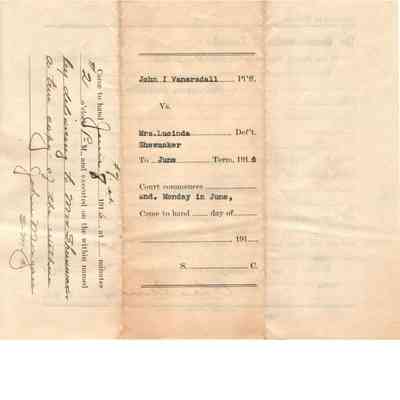 John I Vanarsdall Pl'ff.
Vs.
Mrs.Lucinda Def't.
Shewmaker
To June Term, 1916
Court commences
2nd. Monday in June,
Came to hand day of
191
S. C.
Came to hand June 9 1916 at minutes
M., and executed on the within named
by delivering to Mrs Shewmaker
a true copy of the within